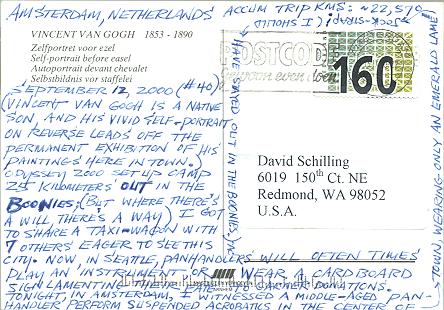 AMSTERDAM, NETHERLANDS
VINCENT VAN GOGH 1853 - 1890
Zelfportret voor ezel
Self-portrait before easel
Autoportrait devant chevalet
Selbstbildnis vor staffelei
SEPTEMBER 12, 2000 (#40)
(VINCENT VAN GOGH IS A NATIVE
SON, AND HIS VIVID SELF-PORTRAIT
ON REVERSE LEADS OFF THE
PERMANENT EXHIBITION OF HIS
PAINTINGS HERE IN TOWN.)
ODYSSEY 2000 SET UP CAMP
25 KILOMETERS OUT IN THE
BOONIES; (BUT WHERE THERE'S
A WILL, THERE'S A WAY) I GOT
TO SHARE A TAXI-WAGON WITH
7 OTHERS EAGER TO SEE THIS
CITY. NOW, IN SEATLE, PANHANDLERS WILL OFTEN TIMES
PLAY AN INSTRUMENT OR WEAR A CARDBOARD
SIGN LAMENTING THEIR FATE TO GATHER DONATIONS.
TONIGHT, IN AMSTERDAM, I WITNESSED A MIDDLE-AGED PAN-
HANDLER PERFORM SUSPENDED ACROBATICS IN THE CENTER OF
TOWN, WEARING ONLY AN EMERALD LAMÉ
JOCK-STRAP! (I SHOULD
HAVE STAYED OUT IN THE BOONIES,
ACCUM TRIP KMS: 22,570
POSTCODE
gewoon even doen
160
David Schilling
6019 150th Ct. NE
Redmond, WA 98052
U.S.A.